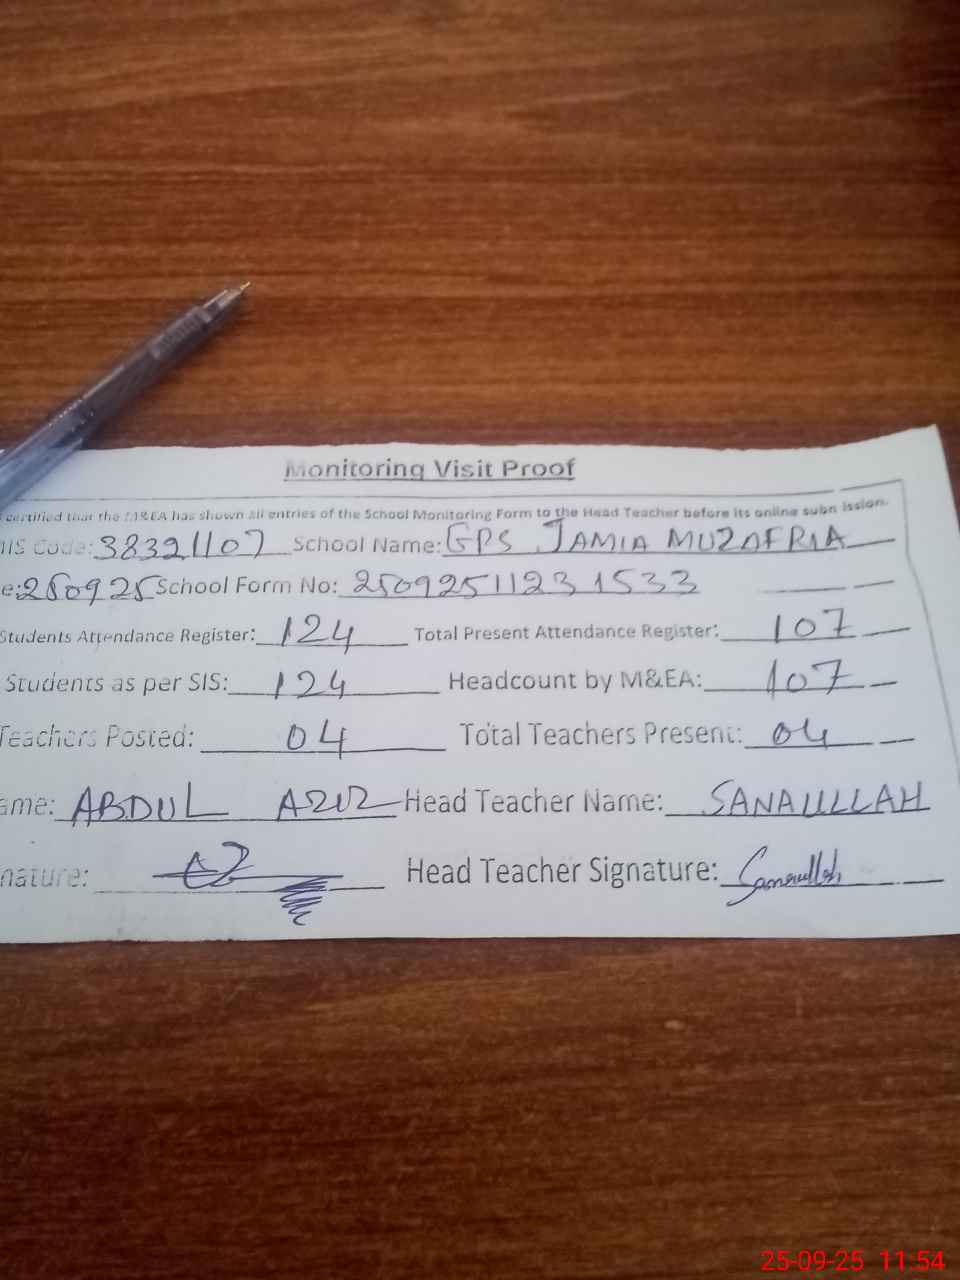 Monitoring Visit Proof
certified that the M&EA has shown all entries of the School Monitoring Form to the Head Teacher before its online submission.
IIS Code: 38321107 School Name: GPS JAMIA MUZAFRIA
e: 250925 School Form No: 25092511231533
Students Attendance Register: 124 Total Present Attendance Register: 107
Students as per SIS: 124 Headcount by M&EA: 107
Teachers Posted: 04 Total Teachers Present: 04
ame: ABDUL AZIZ Head Teacher Name: SANAULLAH
nature: AZ Head Teacher Signature: Sanaullah
25-09-25 11:54